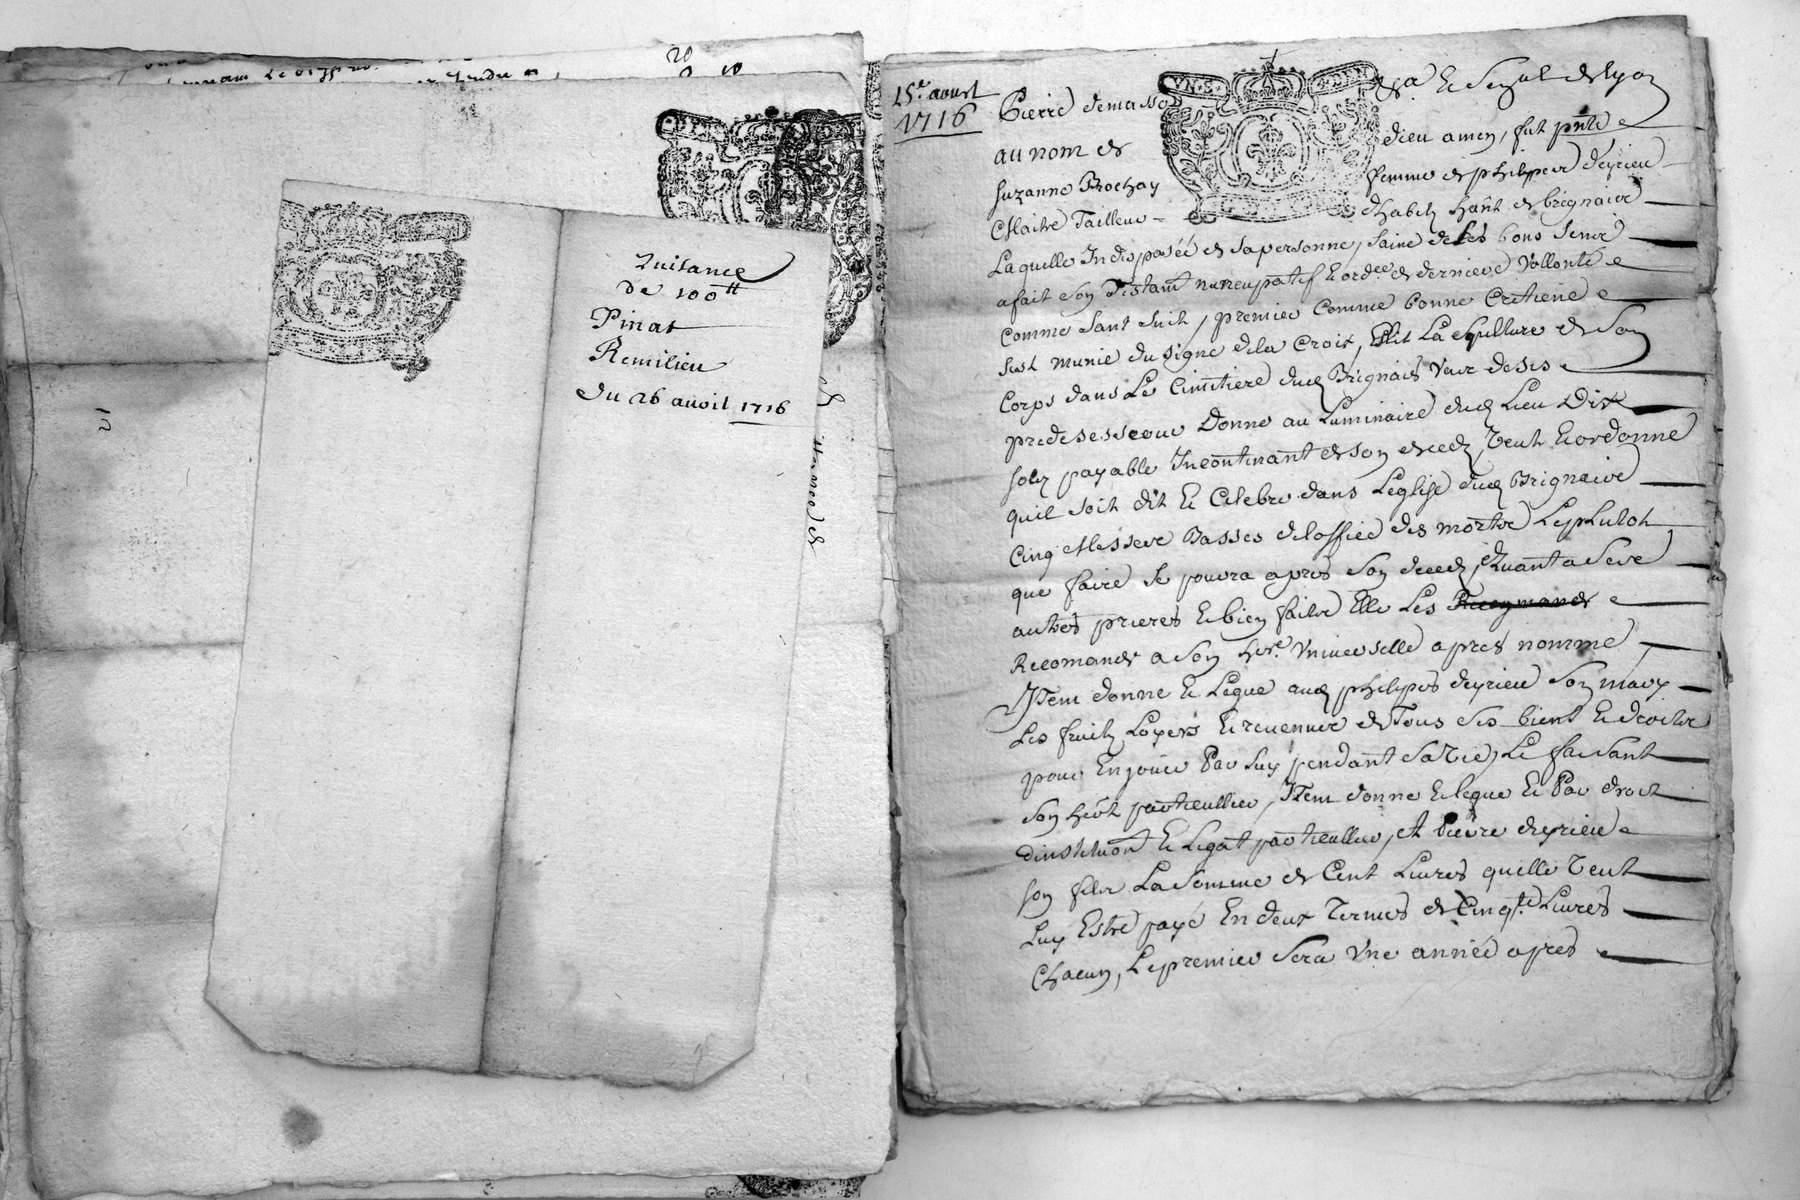 20
10
12
Quitance
de 100tt
Pinat
Remilieu
du 26 auvil 1716
15e aoust
1716
Pierre demasso & Senal de lyon
au nom de dieu amen, fut pnte
Suzanne Brochay femme de philippes deyrieu
Maitre Tailleur dhabitz hant de brignaice
Laquelle Indisposée de sa personne, saine de ses bons sence
a fait son testamt nuncupatif et ordce de derniere vollonte
comme sant suit, premier comme bonne cretiene
sest munie du signe de la croix, Ellit La sepulture de son
Corps dans Le Cimitiere dud Brignais
predesesseour Donne au Luminaire dud Lieu Dix
solz payable Incontinant de son deced, veut et ordonne
quil soit dit et celebre dans Leglise dud Brignaice
cinq Messece Basses de loffice des mortz Leplutot
que faire se pouvra apres son deced, Quant a sece
autres prieres et bien faitz Elle Les
Recomande a son here universelle apres nomme
Item donne et Legue aud philippes deyrieu son mary
Les fruitz Loyers et revenuce de Tous ses bient et droitz
pour En jouir Par Luy pendant sa vie, Le faisant
son hert particullier, Item donne et legue et Par droit
dinstitution et Legat particullier, et Pierre deyrieu
son filz La somme de Cent Livres quelle veut
Luy Estre payé En deux Termes de Cinqte Livres
Chacun, Le premier sera une année apres